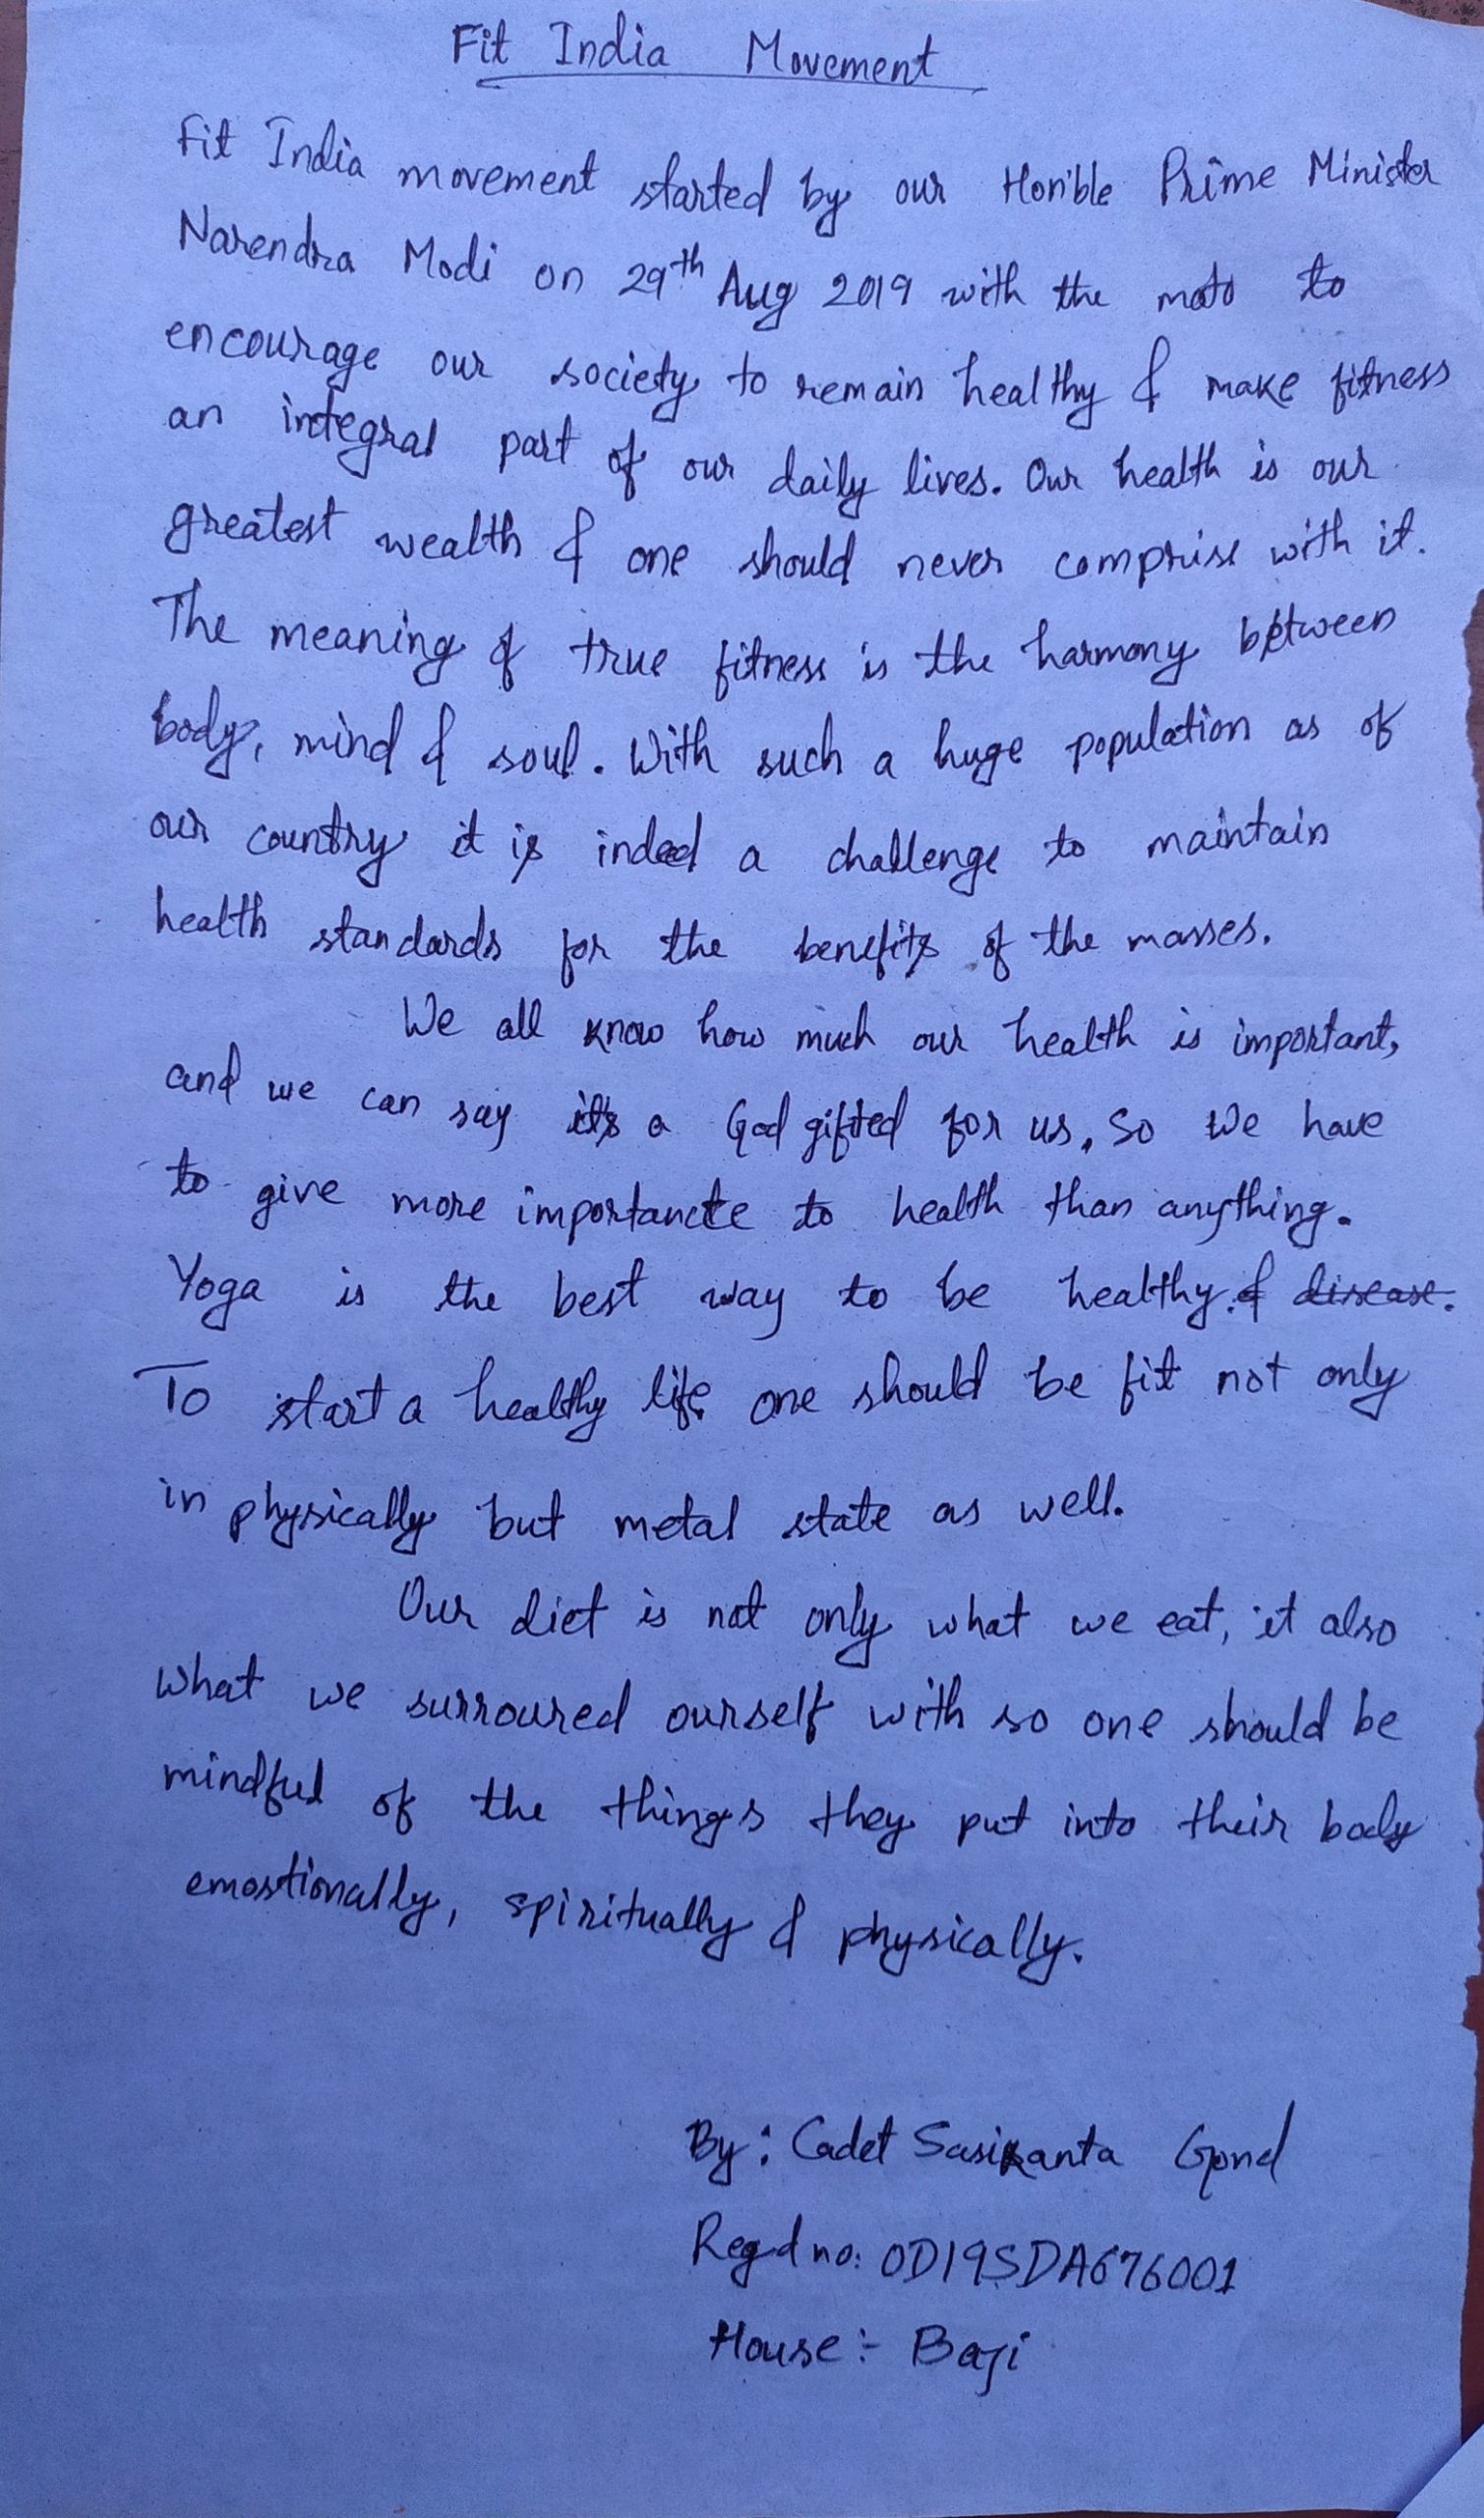 Fit India Movement
Fit India movement started by our Hon'ble Prime Minister
Narendra Modi on 29th Aug 2019 with the moto to
encourage our society to remain healthy & make fitness
an integral part of our daily lives. Our health is our
greatest wealth & one should never comprise with it.
The meaning of true fitness is the harmony between
body, mind & soul. With such a huge population as of
our country it is indeed a challenge to maintain
health standards for the benefits of the masses.
We all know how much our health is important,
and we can say it's a God gifted for us, So we have
to give more importance to health than anything.
Yoga is the best way to be healthy. & disease.
To start a healthy life one should be fit not only
in physically but metal state as well.
Our diet is not only what we eat, it also
what we surroured ourself with so one should be
mindful of the things they put into their body
emostionally, spiritually & physically.
By: Cadet Sasikanta Gond
Regd no: OD19SDA676001
House :- Baji